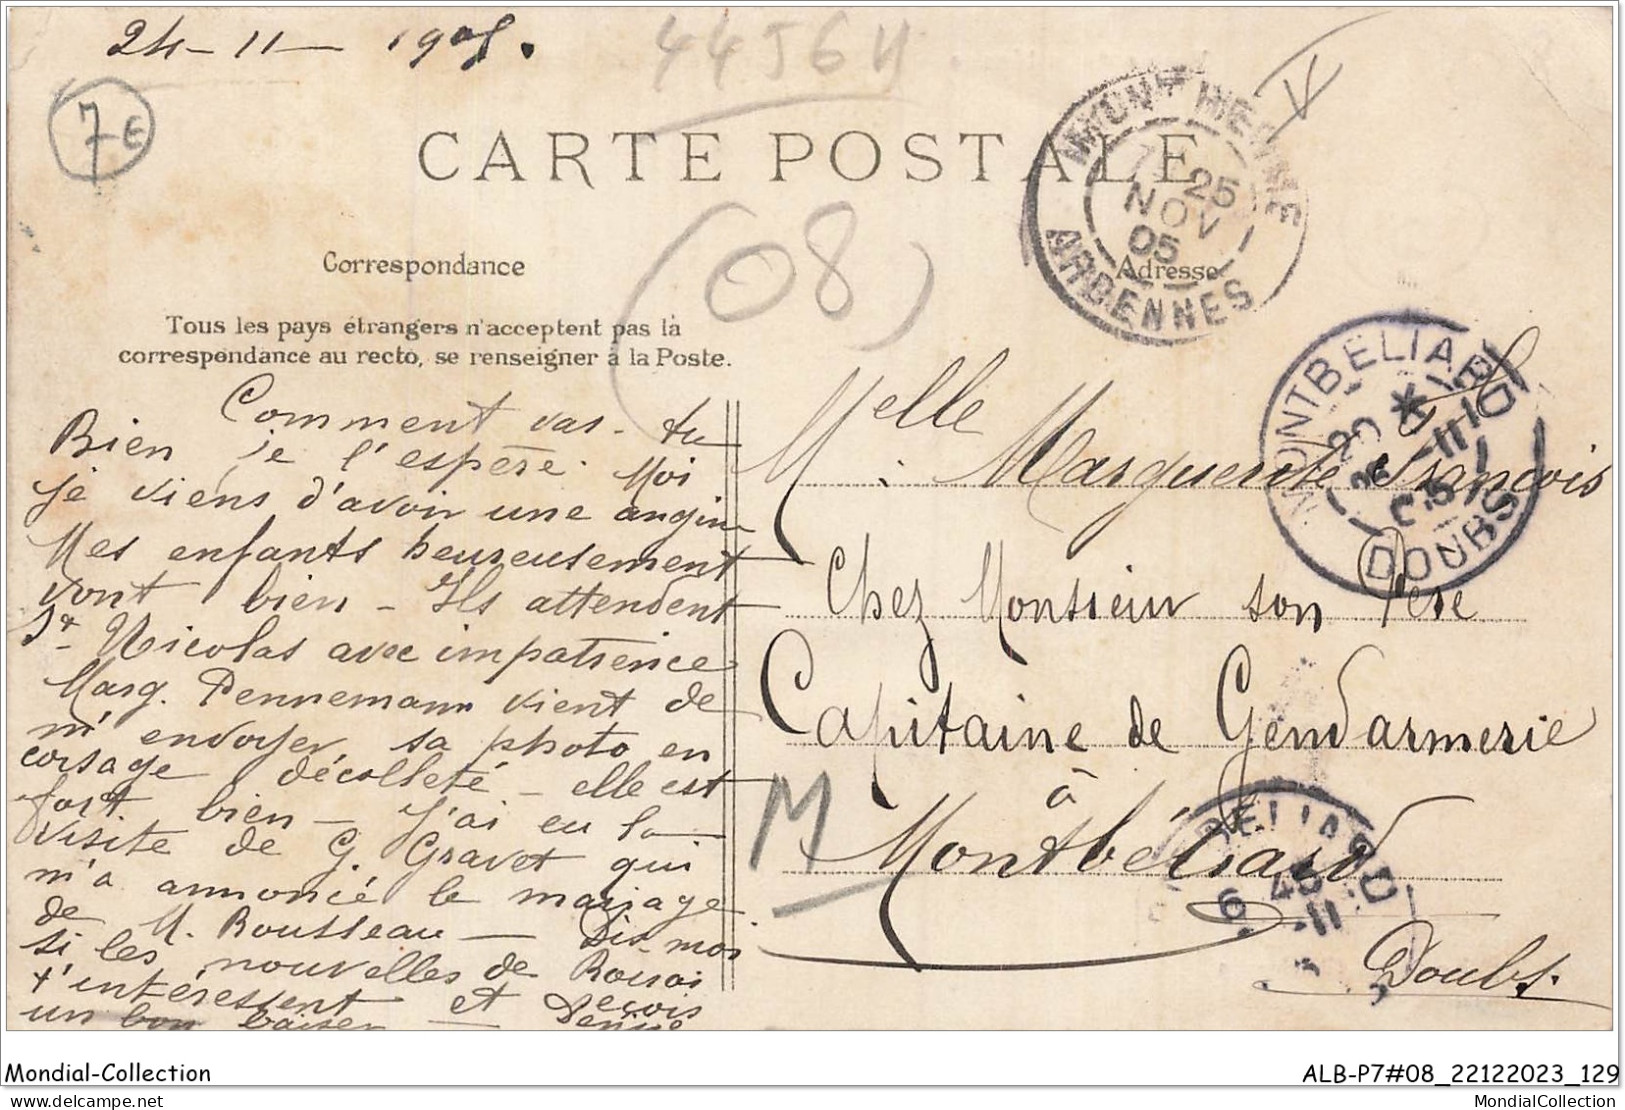 24-11-1905.
44564
7€
CARTE POSTALE
MONTHERMÉ
25
NOV
05
ARDENNES
(08)
Correspondance
Adresse
Tous les pays étrangers n'acceptent pas la
correspondance au recto, se renseigner à la Poste.
MONTBÉLIARD
20 *
-11
05
DOUBS
Comment vas-tu
Bien je l'espère. Moi
je viens d'avoir une angine
Mes enfants heureusement
vont bien - Ils attendent
St Nicolas avec impatience
Marg. Pennemann vient de
m'envoyer sa photo en
corsage décolleté - elle est
fort bien - J'ai eu la
visite de G. Gravet qui
m'a annoncé le mariage
de M. Rousseau - Dis-moi
si les nouvelles de
t'intéressent et reçois
un bon baiser -
Melle Marguerite François
Chez Monsieur son Père
Capitaine de Gendarmerie
à
Montbéliard
Doubs.
M
BELIARD
6 45
-11
Mondial-Collection
ALB-P7#08_22122023_129
delcampe.net
MondialCollection